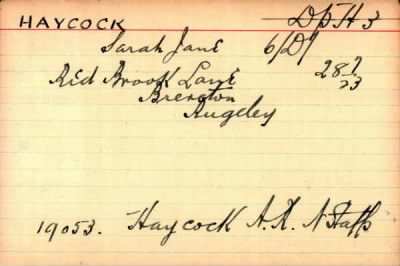 HAYCOCK DPH 3
Sarah Jane 6/D/
Red Brook Lane 28 7/23
Brereton
Rugeley
19053. Haycock A. N Staffs